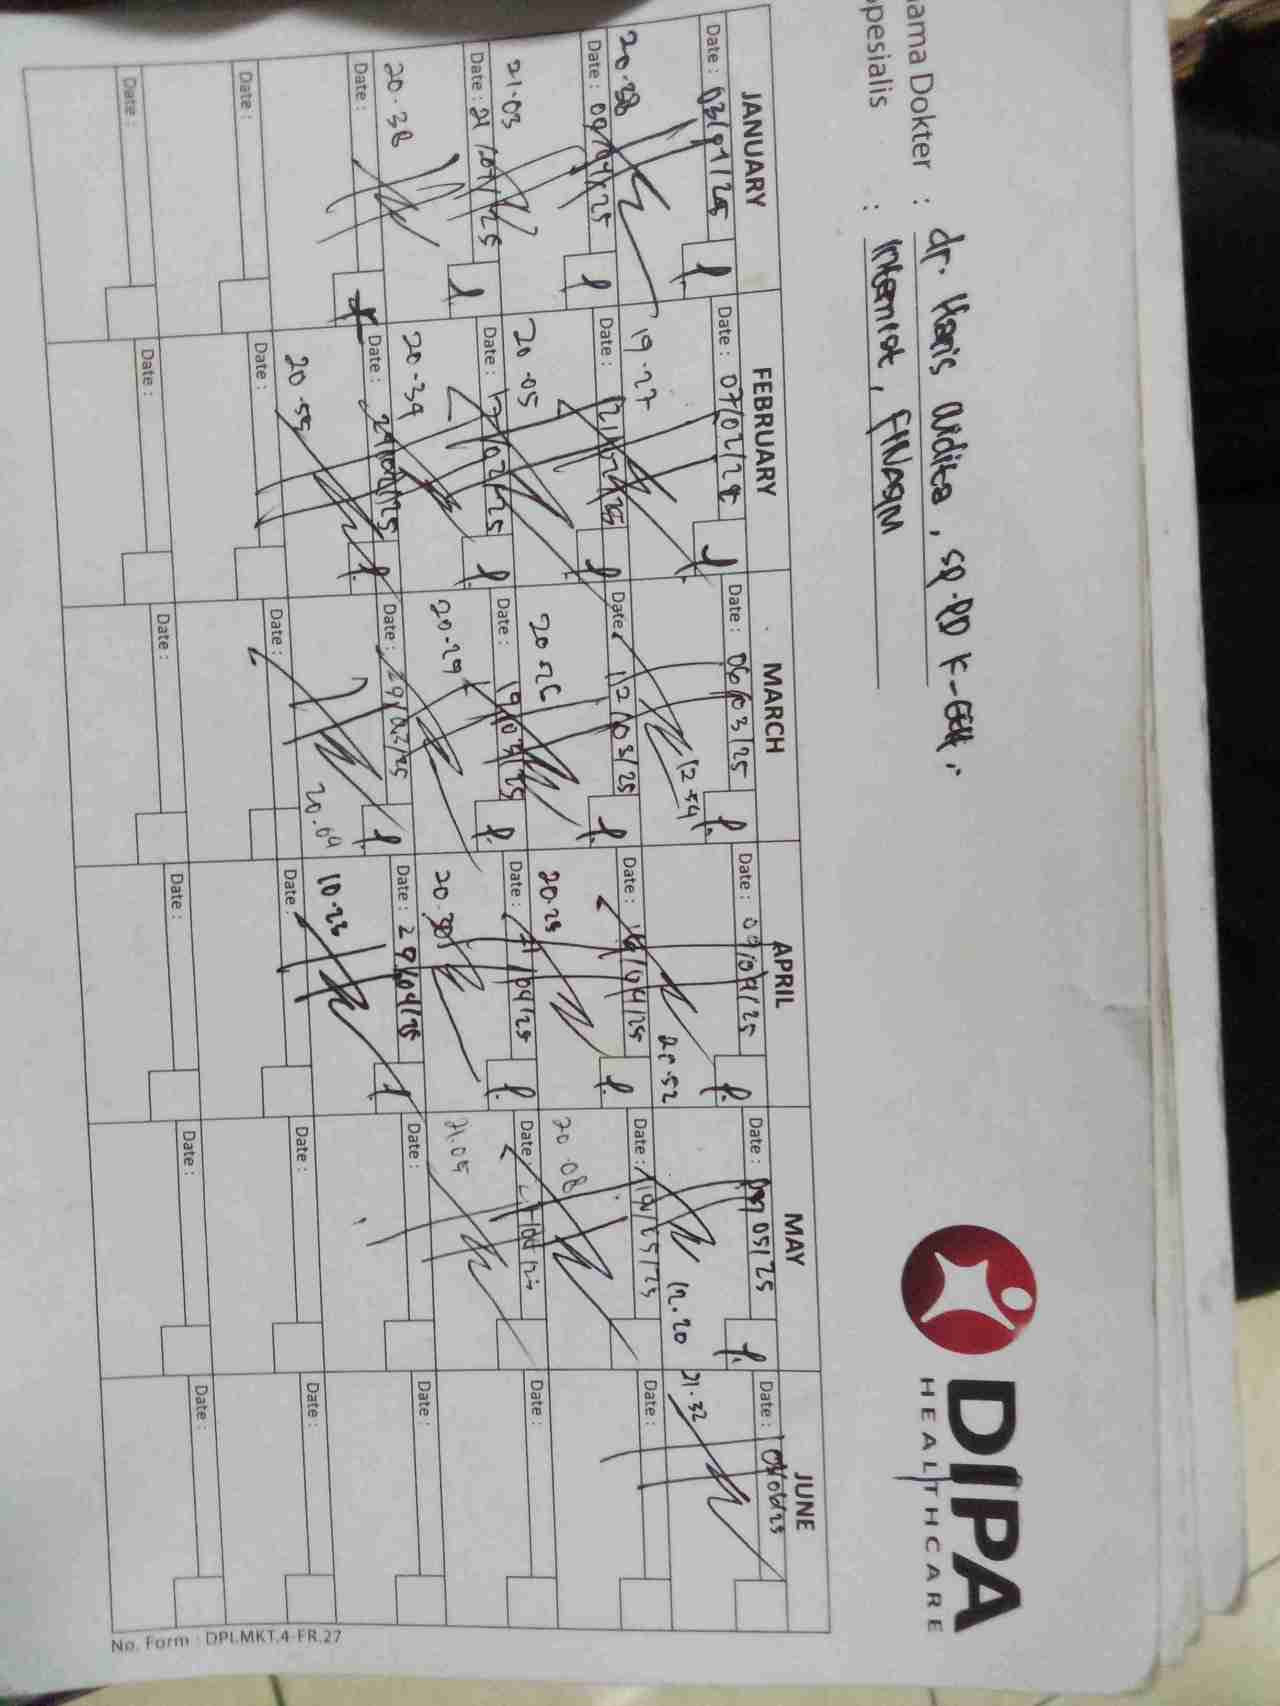 DIPA
HEALTHCARE
ama Dokter : dr. Haris widita, sp.PD K-GEH.
pesialis : Internist, FINASIM
JANUARY FEBRUARY MARCH APRIL MAY JUNE
Date: 03/01/25 Date: 07/02/25 Date: 06/03/25 Date: 09/04/25 Date: 05/25 Date:
20.38 19.27 12.54 20.52 12.20 21.32
Date: 09/01/25 Date: 12/02/25 Date: 12/03/25 Date: 16/04/25 Date: 19/05/25 Date:
21.03 20.05 20.26 20.25 20.08
Date: 21/01/25 Date: 17/02/25 Date: 19/03/25 Date: 21/04/25 Date: Date:
20.38 20.34 20.29 20.30 21.05
Date: Date: 24/02/25 Date: 24/03/25 Date: 29/04/25 Date: Date:
20.55 20.09 10.23
Date: Date: Date: Date: Date: Date:
Date: Date: Date: Date: Date: Date:
No. Form : DPI.MKT.4-FR.27